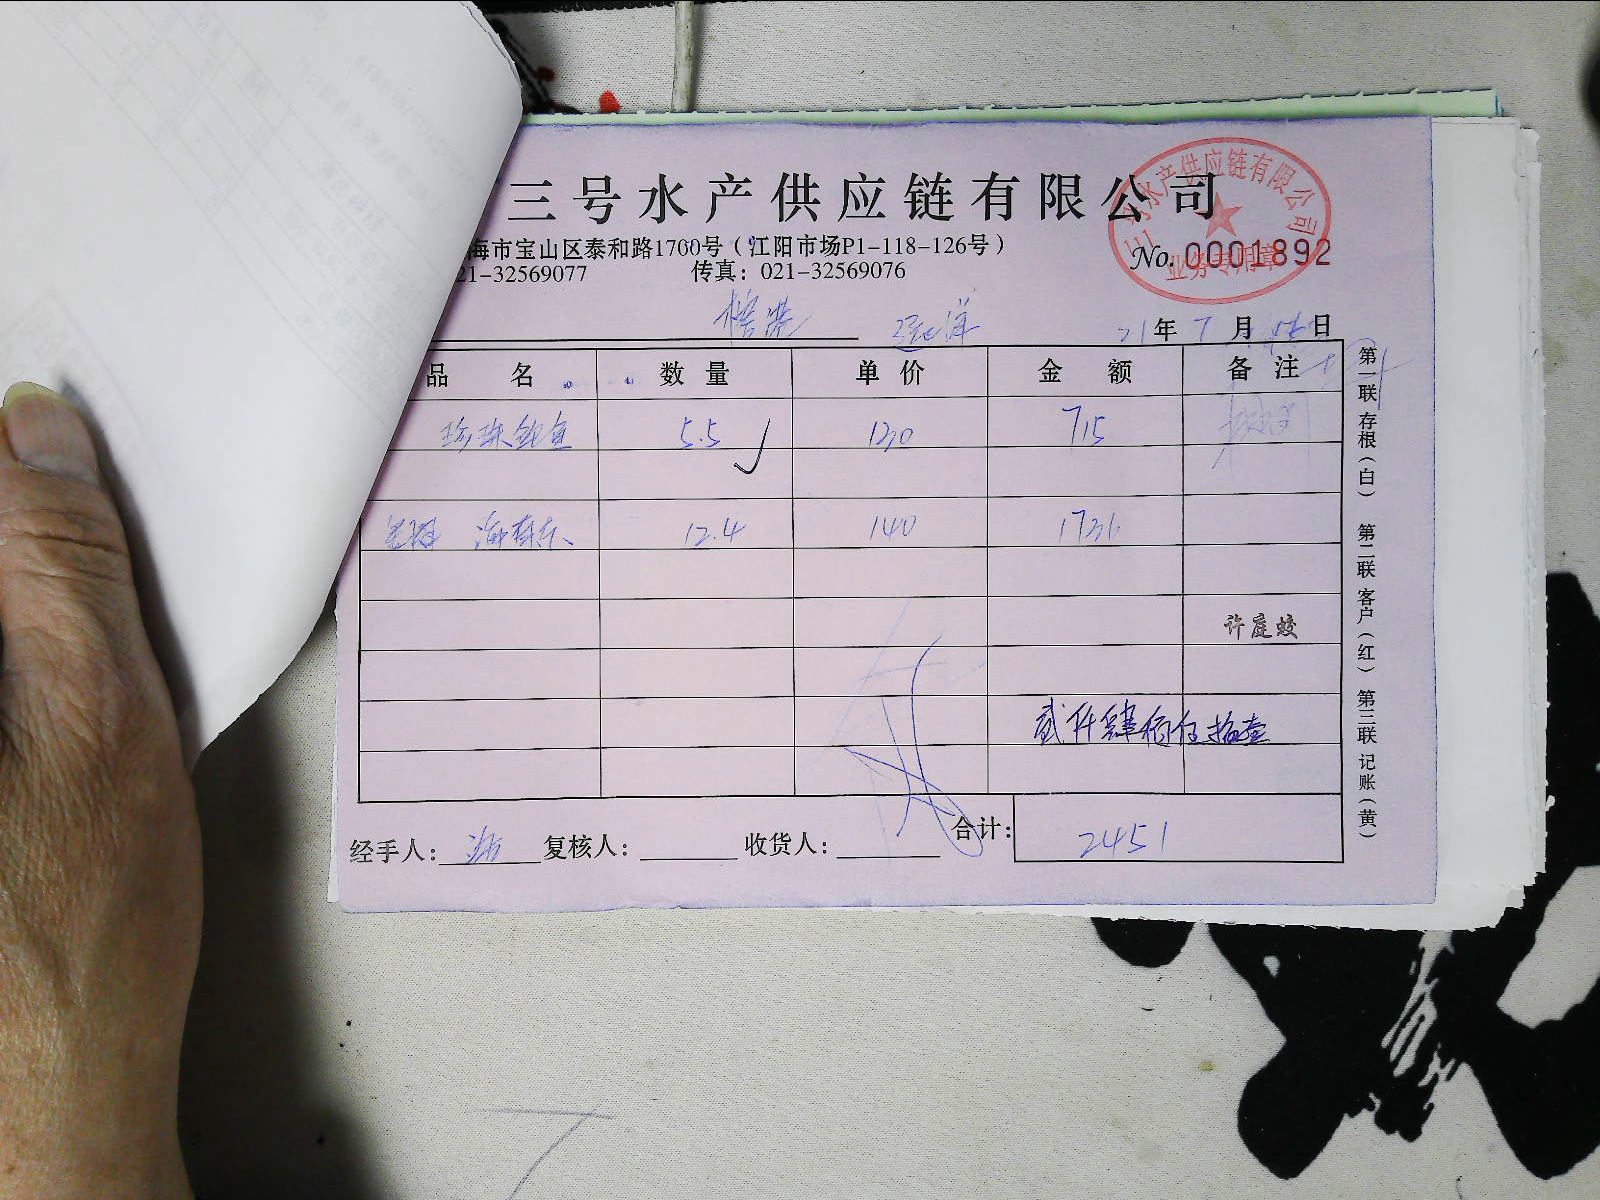 三号水产供应链有限公司
海市宝山区泰和路1700号（江阳市场P1-118-126号）
21-32569077 传真：021-32569076
三号水产供应链有限公司
业务专用章
No. 0001892
21年7月 日
品 名 数 量 单 价 金 额 备 注
珍珠 鱼 5.5 130 715
12.4 140 1736
许庭蛟
贰仟肆佰伍拾壹
经手人： 复核人： 收货人： 合计： 2451
第一联 存根（白） 第二联 客户（红） 第三联 记账（黄）